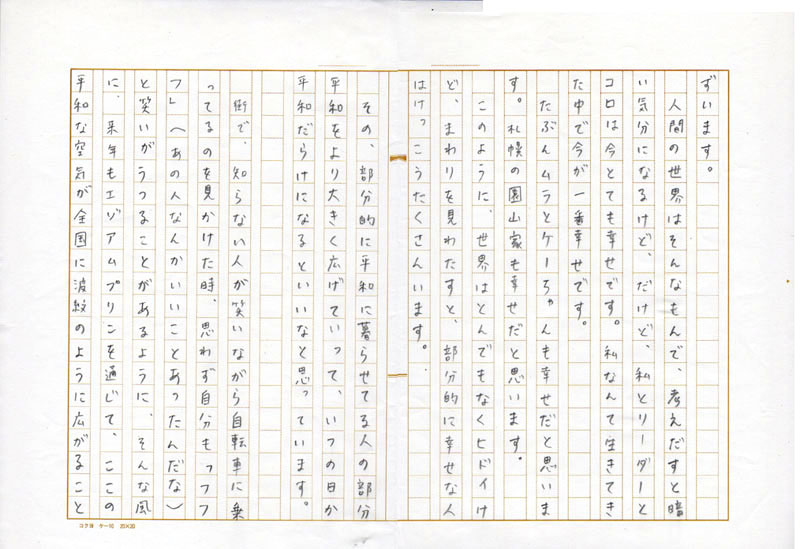 ずいます。
人間の世界はそんなもんで、考えだすと暗
い気分になるけど、だけど、私とリーダーと
コロは今とても幸せです。私なんて生きてき
た中で今が一番幸せです。
たぶんムラとケーちゃんも幸せだと思いま
す。札幌の園山家も幸せだと思います。
このように、世界はとんでもなくヒドイけ
ど、まわりを見わたすと、部分的に幸せな人
はけっこうたくさんいます。
その、部分的に平和に暮らせてる人の部分
平和をより大きく広げていって、いつの日か
平和だらけになるといいなと思っています。
街で、知らない人が笑いながら自転車に乗
ってるのを見かけた時、思わず自分も「フフ
フ」(あの人なんかいいことあったんだな)
と笑いがうつることがあるように、そんな風
に、来年もエゾアムプリンを通じて、ここの
平和な空気が全国に波紋のように広がること
コクヨ ケー10 20×20